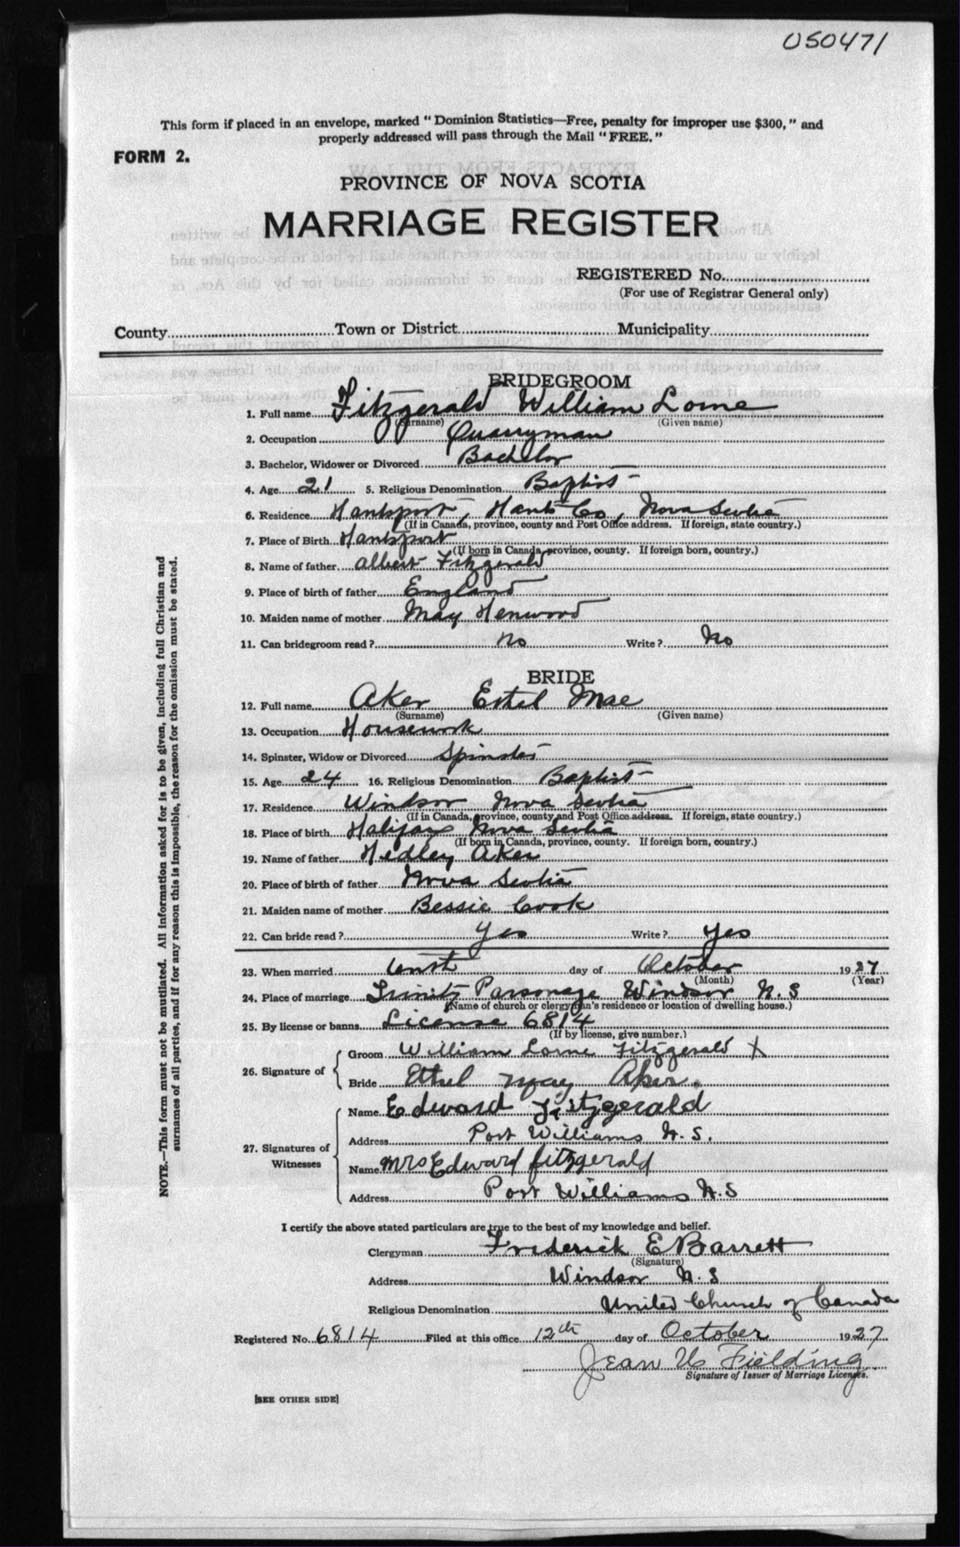 050471
This form if placed in an envelope, marked "Dominion Statistics—Free, penalty for improper use $300," and
properly addressed will pass through the Mail "FREE."
FORM 2.
PROVINCE OF NOVA SCOTIA
MARRIAGE REGISTER
REGISTERED No.
(For use of Registrar General only)
County Town or District Municipality
BRIDEGROOM
1. Full name Fitzgerald William Lorne
(Surname) (Given name)
2. Occupation Quarryman
3. Bachelor, Widower or Divorced Bachelor
4. Age 21 5. Religious Denomination Baptist
6. Residence Hantsport, Hants Co, Nova Scotia
(If in Canada, province, county and Post Office address. If foreign, state country.)
7. Place of Birth Hantsport
(If born in Canada, province, county. If foreign born, country.)
8. Name of father Albert Fitzgerald
9. Place of birth of father England
10. Maiden name of mother May Henwood
11. Can bridegroom read? No Write? No
BRIDE
12. Full name Aker Ethel Mae
(Surname) (Given name)
13. Occupation Housework
14. Spinster, Widow or Divorced Spinster
15. Age 24 16. Religious Denomination Baptist
17. Residence Windsor Nova Scotia
(If in Canada, province, county and Post Office address. If foreign, state country.)
18. Place of birth Halifax Nova Scotia
(If born in Canada, province, county. If foreign born, country.)
19. Name of father Hedley Aker
20. Place of birth of father Nova Scotia
21. Maiden name of mother Bessie Cook
22. Can bride read? Yes Write? Yes
23. When married day of October 1927
(Month) (Year)
24. Place of marriage Trinity Parsonage Windsor N.S
(Name of church or clergyman's residence or location of dwelling house.)
25. By license or banns License 6814
(If by license, give number.)
26. Signature of
Groom William Lorne Fitzgerald X
Bride Ethel May Aker.
27. Signatures of Witnesses
Name Edward Fitzgerald
Address Port Williams N.S.
Name Mrs Edward fitzgerald
Address Port Williams N.S
I certify the above stated particulars are true to the best of my knowledge and belief.
Clergyman Frederick E Barrett
(Signature)
Address Windsor N.S
Religious Denomination United Church of Canada
Registered No. 6814 Filed at this office 12th day of October 1927
Jean Fielding
Signature of Issuer of Marriage Licenses.
[SEE OTHER SIDE]
NOTE.—This form must not be mutilated. All information asked for is to be given, including full Christian and
surnames of all parties, and if for any reason this is impossible, the reason for the omission must be stated.